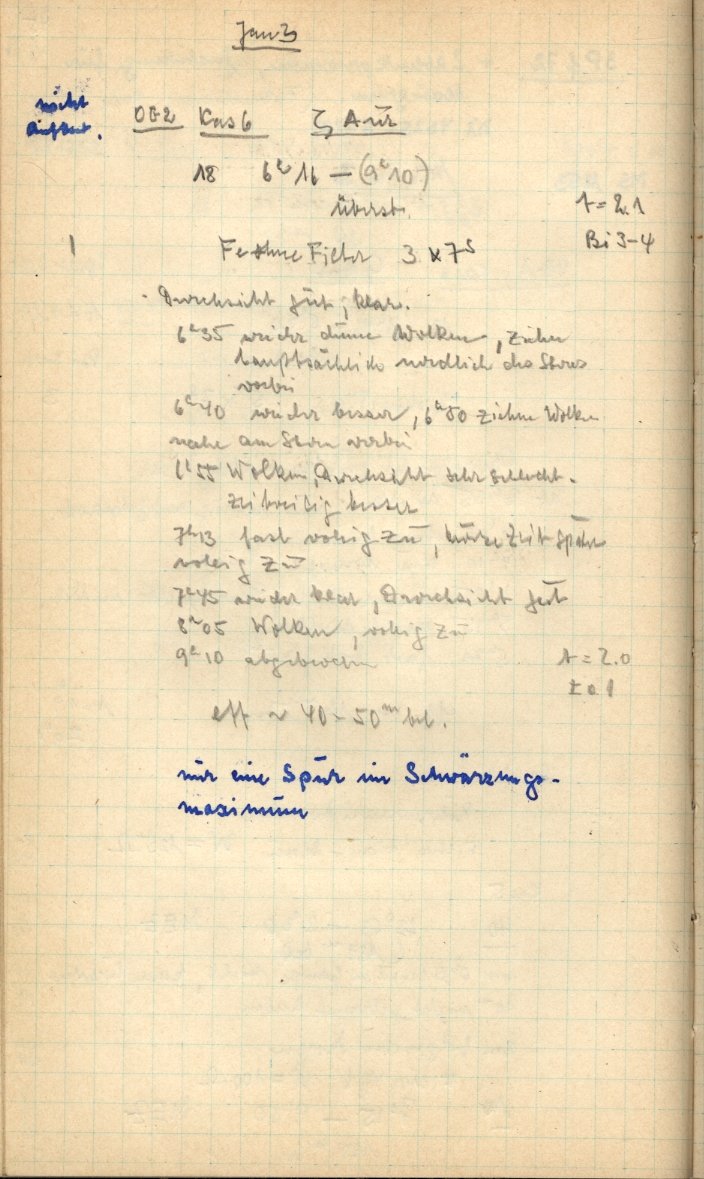 Jan 3
nicht
aufbew.
OG2 Kas 6 ζ Aur
18 6ʰ16 – (9ʰ10)
überst.
t = 2.1
Bi 3-4
1 Fe ohne Filter 3 x 7ˢ
Durchsicht gut, klar.
6ʰ35 wieder dünne Wolken, ziehen
hauptsächlich nördlich des Sterns
vorbei
6ʰ40 wieder besser, 6ʰ50 ziehen Wolken
nahe am Stern vorbei
6ʰ55 Wolken, Durchsicht sehr schlecht.
zeitweilig besser
7ʰ13 fast völlig zu, kurze Zeit später
völlig zu
7ʰ45 wieder klar, Durchsicht gut
8ʰ05 Wolken, völlig zu
9ʰ10 abgebrochen
t = 2.0
± 0.1
eff ~ 40-50ᵐ bel.
nur eine Spur im Schwärzungs-
maximum